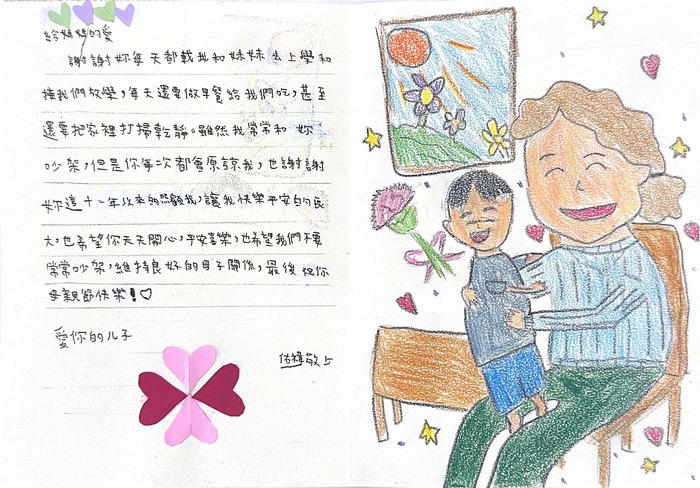 給媽媽的愛
謝謝妳每天都載我和妹妹去上學和
接我們放學,每天還要做早餐給我們吃,甚至
還要把家裡打掃乾靜。雖然我常常和妳
吵架,但是你每次都會原諒我,也謝謝
妳這十一年以來的照顧我,讓我快樂平安的長
大,也希望你天天開心,平安喜樂,也希望我們不要
常常吵架,維持良好的母子關係,最後祝你
母親節快樂!♡
愛你的儿子
佑緯敬上